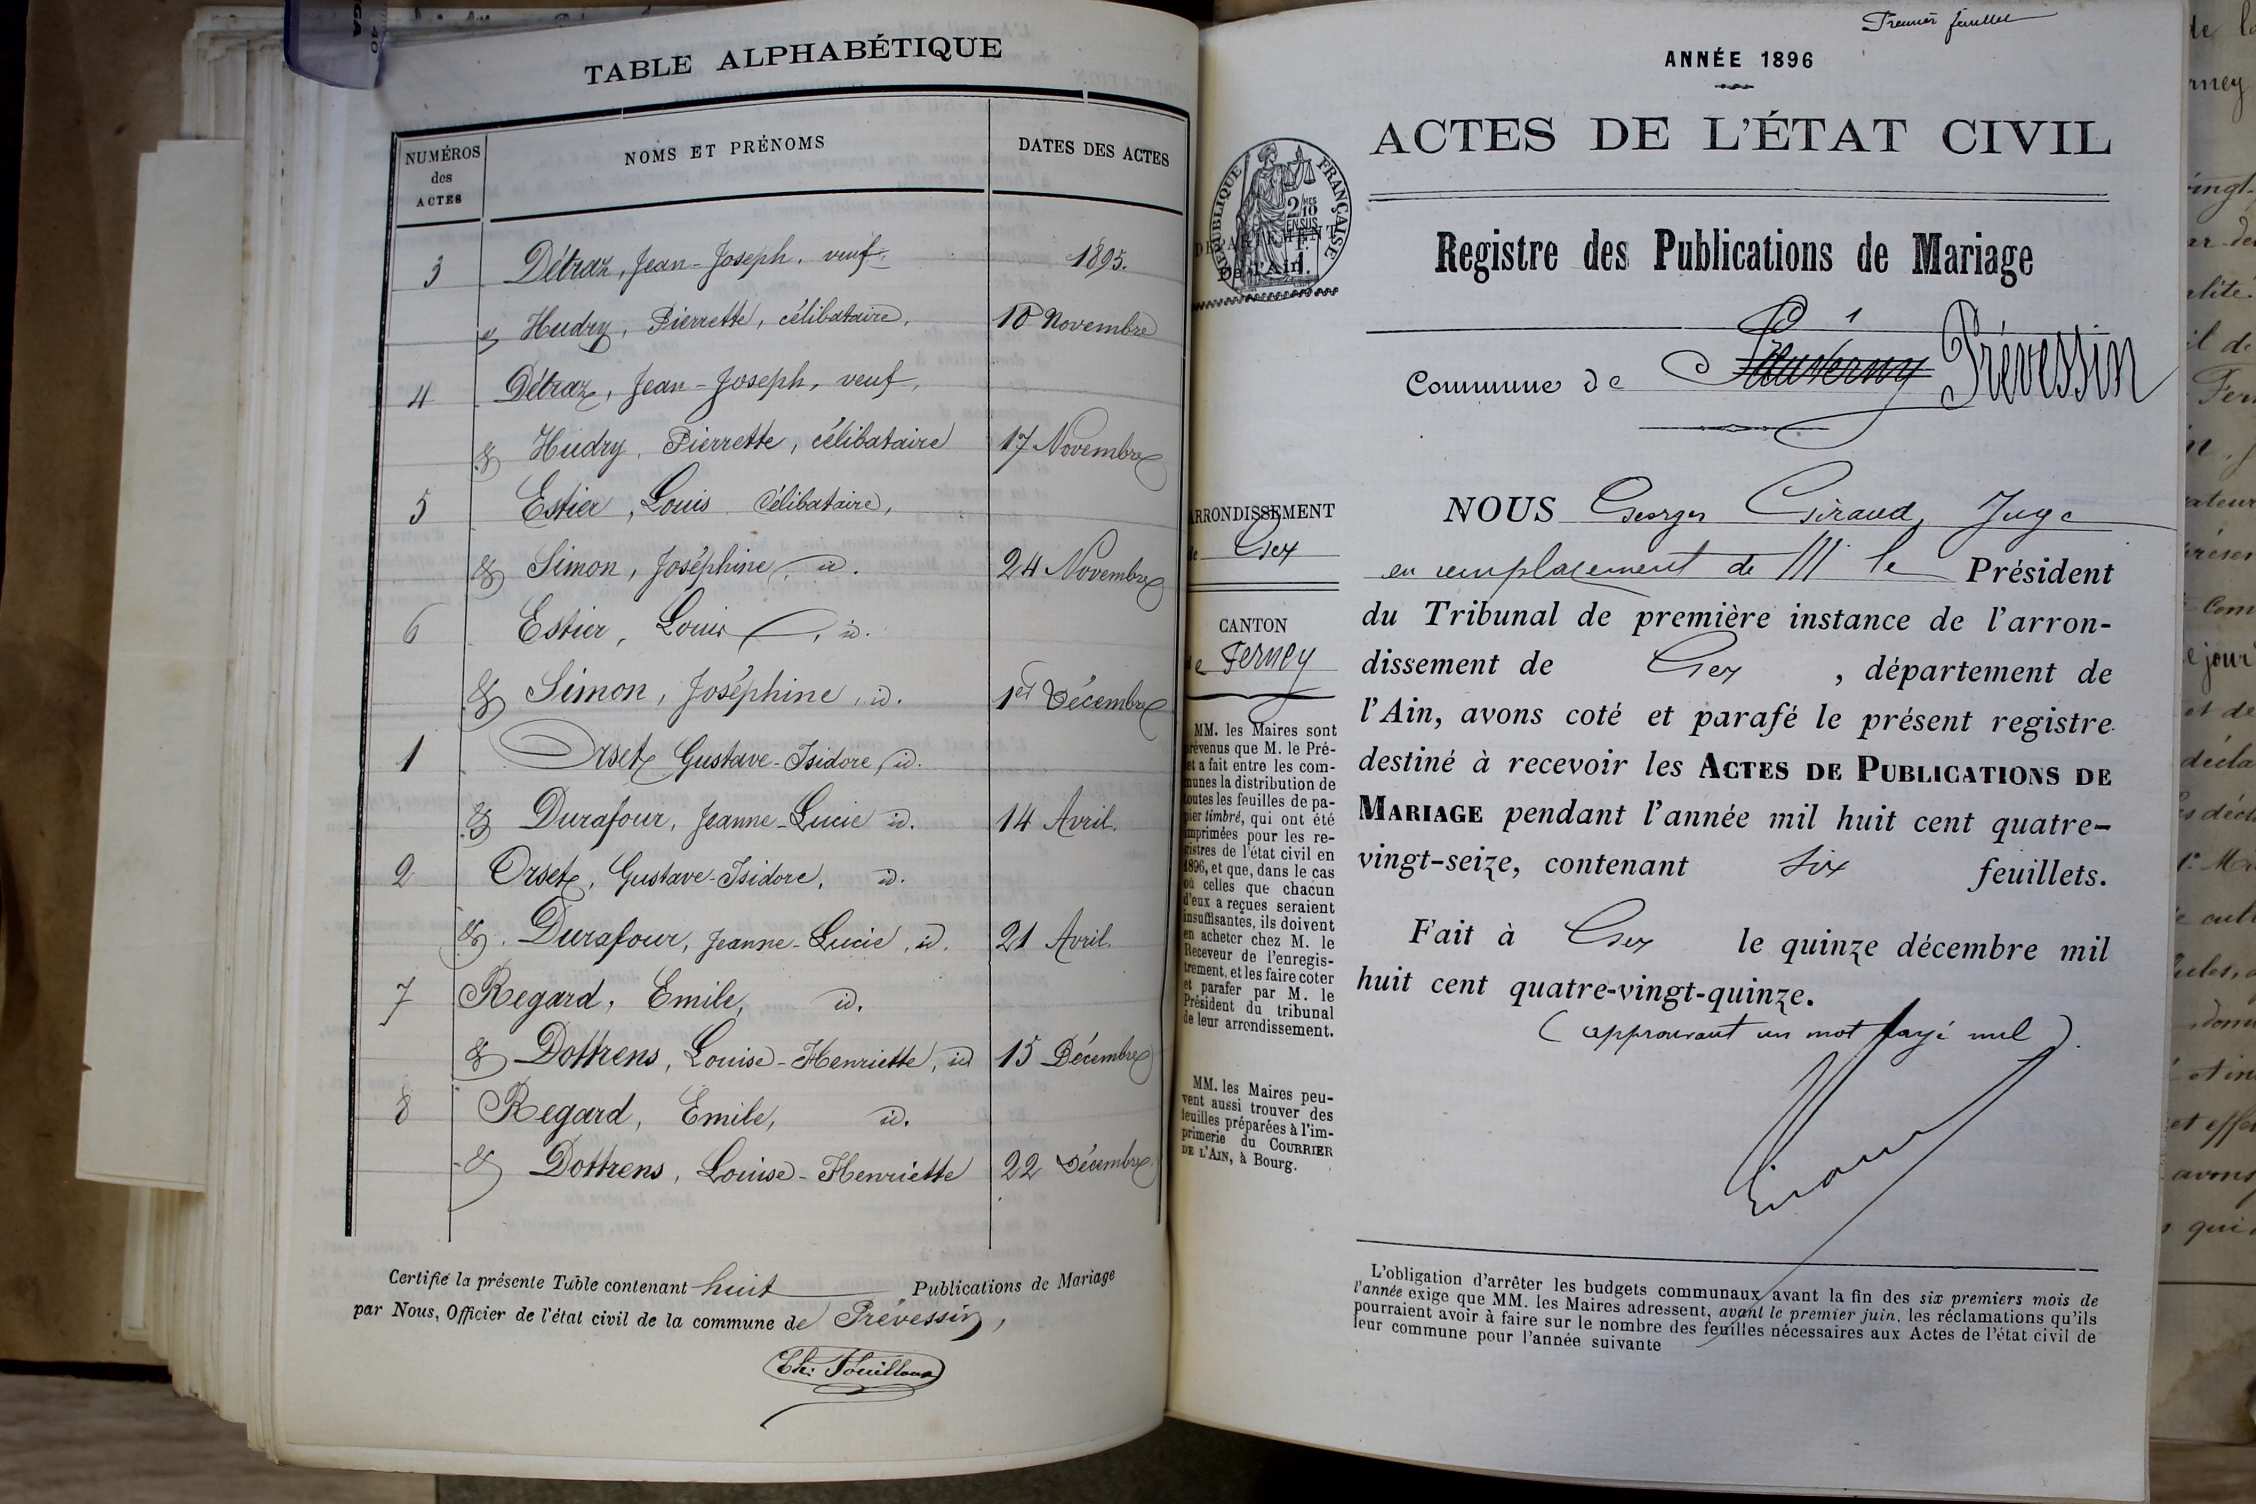 TABLE ALPHABÉTIQUE
NUMÉROS des ACTES
NOMS ET PRÉNOMS
DATES DES ACTES
3 Détraz, Jean-Joseph, veuf. 1895.
& Hudry, Pierrette, célibataire, 10 Novembre
4 Détraz, Jean-Joseph, veuf,
& Hudry, Pierrette, célibataire 17 Novembre
5 Estier, Louis célibataire,
& Simon, Joséphine, id. 24 Novembre
6 Estier, Louis, id.
& Simon, Joséphine, id. 1er Décembre
1 Orset Gustave-Isidore, id.
& Durafour, Jeanne-Lucie id. 14 Avril.
2 Orset, Gustave-Isidore, id.
& Durafour, Jeanne-Lucie, id. 21 Avril.
7 Regard, Emile, id.
& Dottrens, Louise-Henriette, id 15 Décembre
8 Regard, Emile, id.
& Dottrens, Louise-Henriette 22 Décembre
Certifié la présente Table contenant huit Publications de Mariage
par Nous, Officier de l'état civil de la commune de Prévessin,
Premier feuillet
ANNÉE 1896
ACTES DE L'ÉTAT CIVIL
RÉPUBLIQUE FRANÇAISE
DÉPARTEMENT
De l'Ain.
Registre des Publications de Mariage
Commune de Sauverny Prévessin
ARRONDISSEMENT
de Gex
CANTON
de Ferney
MM. les Maires sont
prévenus que M. le Pré-
fet a fait entre les com-
munes la distribution de
toutes les feuilles de pa-
pier timbré, qui ont été
imprimées pour les re-
gistres de l'état civil en
1896, et que, dans le cas
où celles que chacun
d'eux a reçues seraient
insuffisantes, ils doivent
en acheter chez M. le
Receveur de l'enregis-
trement, et les faire coter
et parafer par M. le
Président du tribunal
de leur arrondissement.
MM. les Maires peu-
vent aussi trouver des
feuilles préparées à l'im-
primerie du COURRIER
DE L'AIN, à Bourg.
NOUS Georges Giraud, Juge
en remplacement de M le Président
du Tribunal de première instance de l'arron-
dissement de Gex, département de
l'Ain, avons coté et parafé le présent registre
destiné à recevoir les ACTES DE PUBLICATIONS DE
MARIAGE pendant l'année mil huit cent quatre-
vingt-seize, contenant six feuillets.
Fait à Gex le quinze décembre mil
huit cent quatre-vingt-quinze.
(approuvant un mot rayé nul).
L'obligation d'arrêter les budgets communaux avant la fin des six premiers mois de
l'année exige que MM. les Maires adressent, avant le premier juin, les réclamations qu'ils
pourraient avoir à faire sur le nombre des feuilles nécessaires aux Actes de l'état civil de
leur commune pour l'année suivante